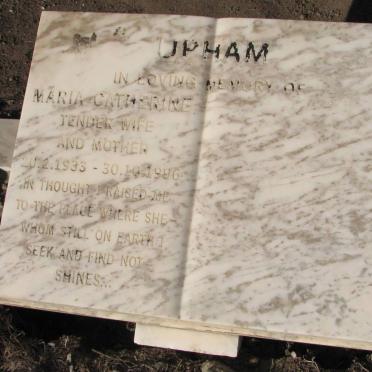 UPHAM
IN LOVING MEMORY OF
MARIA CATHERINE
TENDER WIFE
AND MOTHER
.2.1933 - 30.10.1986
IN THOUGHT I RAISED ME
TO THE PLACE WHERE SHE
WHOM STILL ON EARTH I
SEEK AND FIND NOT
SHINES...